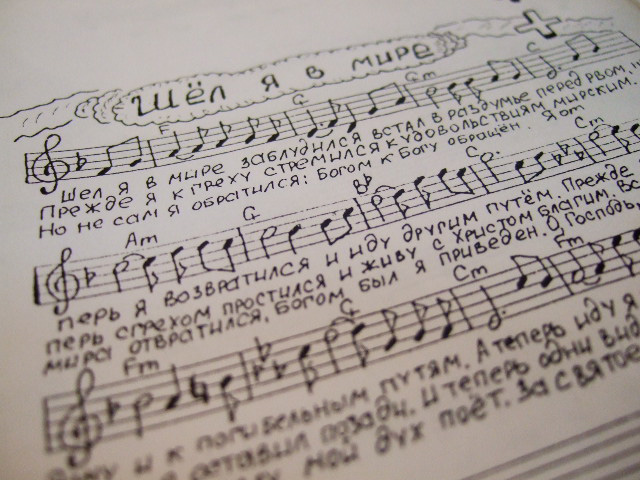 Шёл я в мире
F G Gm C
Шел я в мире заблудился встал в раздумье перед рвом,
Прежде я к греху стремился к удовольствиям мирским,
Но не сам я обратился: Богом к Богу обращён. Я от
Am G B♭ C Cm
перь я возвратился и иду другим путём. Прежде
перь с грехом простился и живу с Христом благим. Вс
мира отвратился, Богом был я приведён. О, Господь,
Fm C Cm Fm
и к погибельным путям. А теперь иду я
оставил позади. И теперь одни
мой дух поёт. За святое